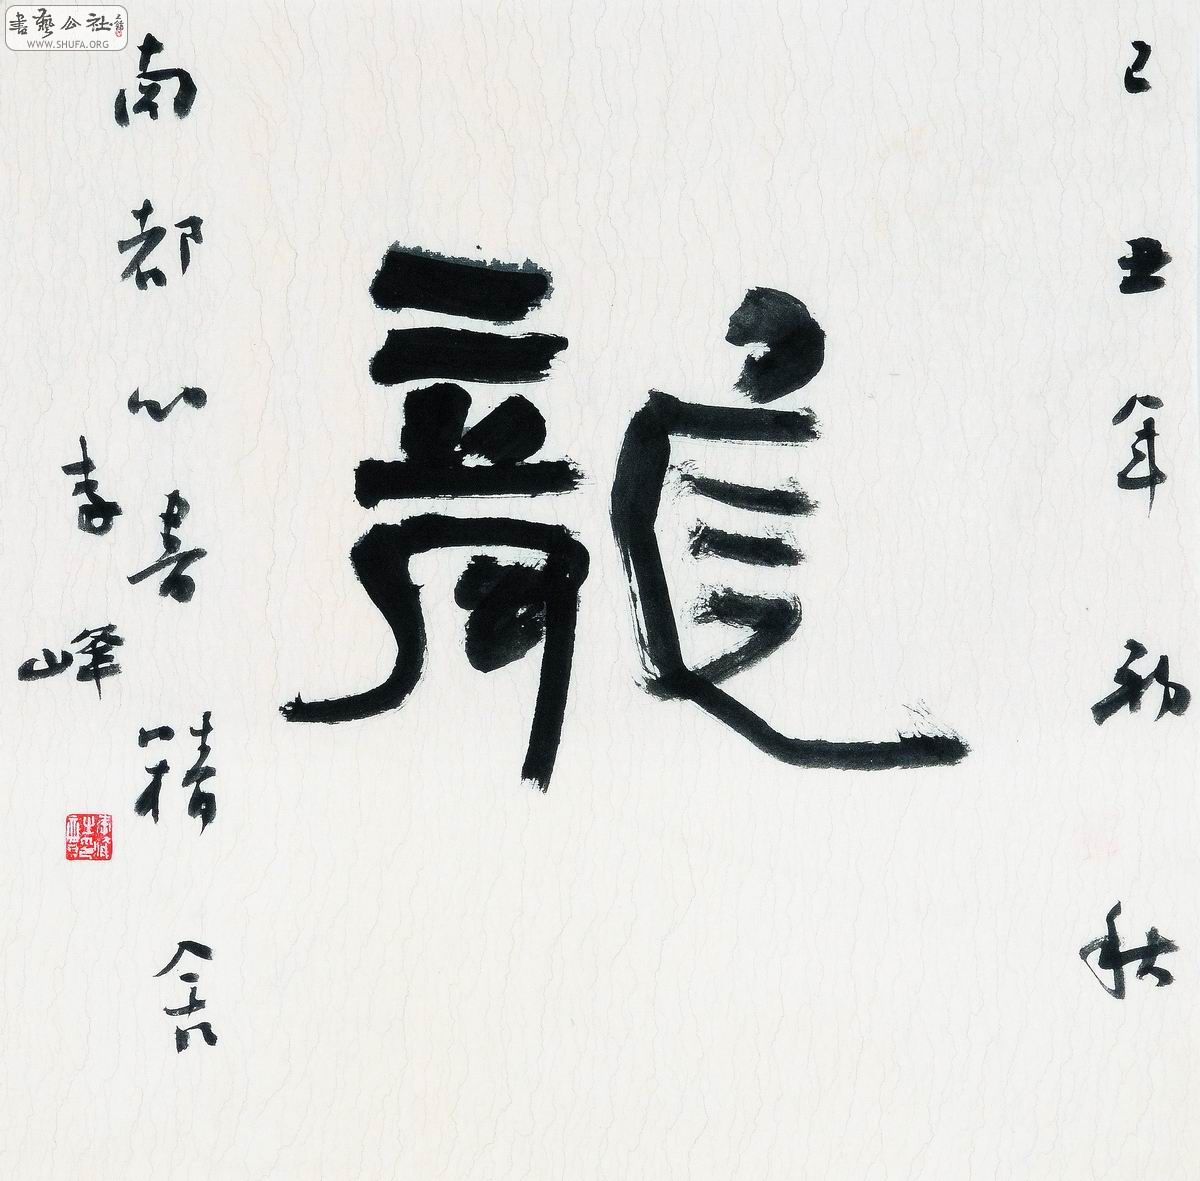 書藝公社
WWW.SHUFA.ORG
己丑年初秋
龍
南都心書精舍
李峰